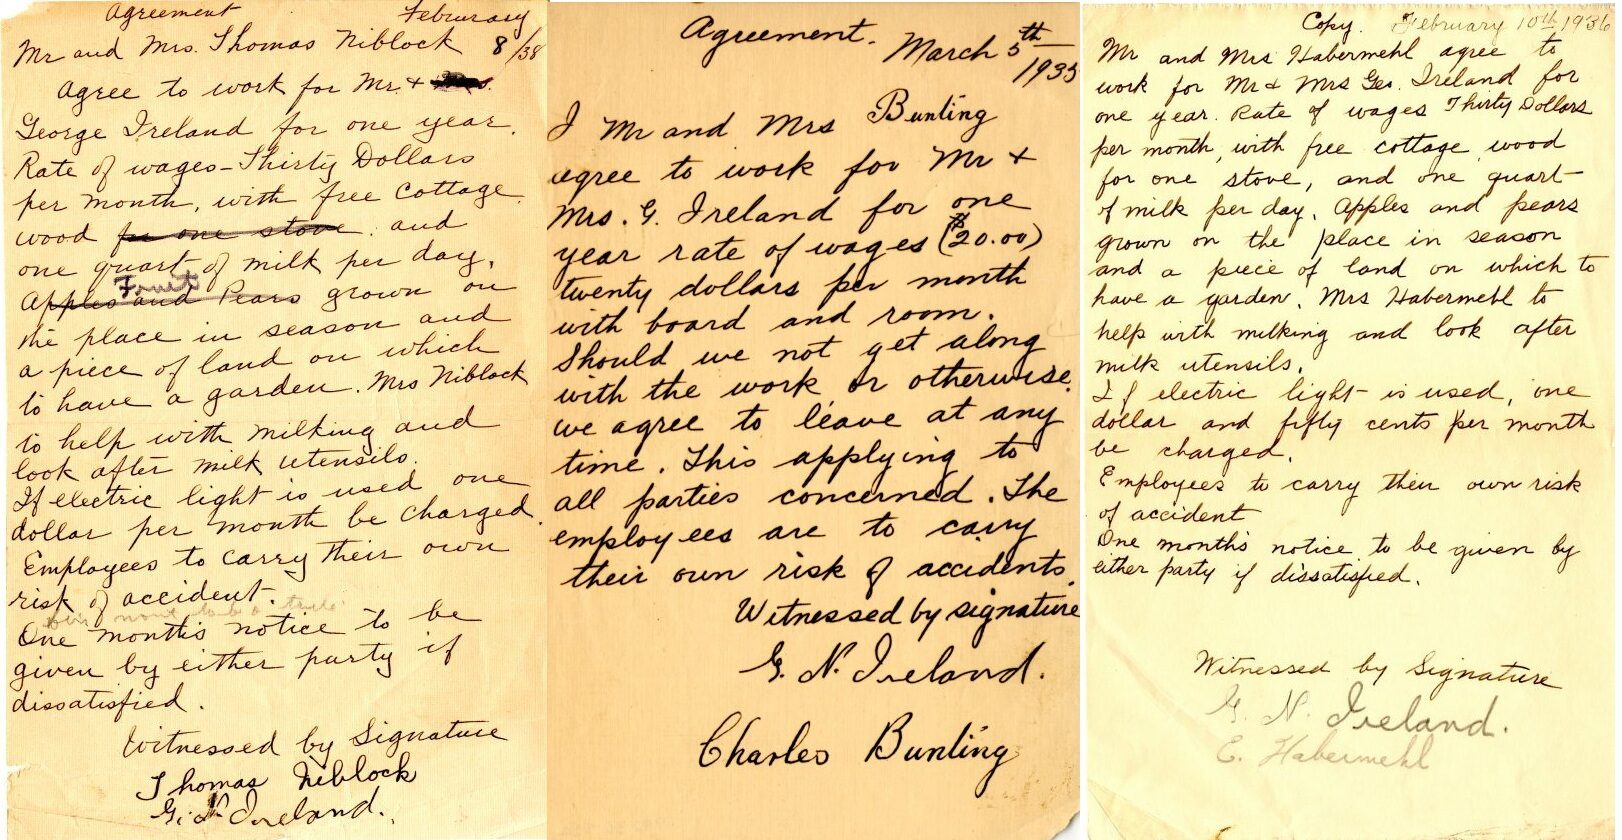 Agreement
Feburary
Mr and Mrs. Thomas Niblock 8/38
Agree to work for Mr. +
George Ireland for one year.
Rate of wages – Thirty Dollars
per month, with free cottage
wood for one stove. and
one quart of milk per day.
Fruit
Apples and Pears grown on
the place in season and
a piece of land on which
to have a garden. Mrs Niblock
to help with milking and
look after milk utensils.
If electric light is used one
dollar per month be charged.
Employees to carry their own
risk of accident.
One month's notice to be
given by either party if
dissatisfied.
Witnessed by Signature
Thomas Niblock
G. N. Ireland.
Agreement.
March 5th
1935
I Mr and Mrs Bunting
agree to work for Mr +
Mrs. G. Ireland for one
year rate of wages ($20.00)
twenty dollars per month
with board and room.
Should we not get along
with the work or otherwise.
we agree to leave at any
time. This applying to
all parties concerned. The
employees are to carry
their own risk of accidents.
Witnessed by signature
G. N. Ireland.
Charles Bunting
Copy. February 10th, 1936
Mr and Mrs Habermehl agree to
work for Mr & Mrs Geo. Ireland for
one year. Rate of wages Thirty Dollars
per month, with free cottage, wood
for one stove, and one quart
of milk per day. Apples and pears
grown on the place in season
and a piece of land on which to
have a garden. Mrs Habermehl to
help with milking and look after
milk utensils.
If electric light is used, one
dollar and fifty cents per month
be charged.
Employees to carry their own risk
of accident
One months notice to be given by
either party if dissatisfied.
Witnessed by Signature
G. N. Ireland.
E. Habermehl